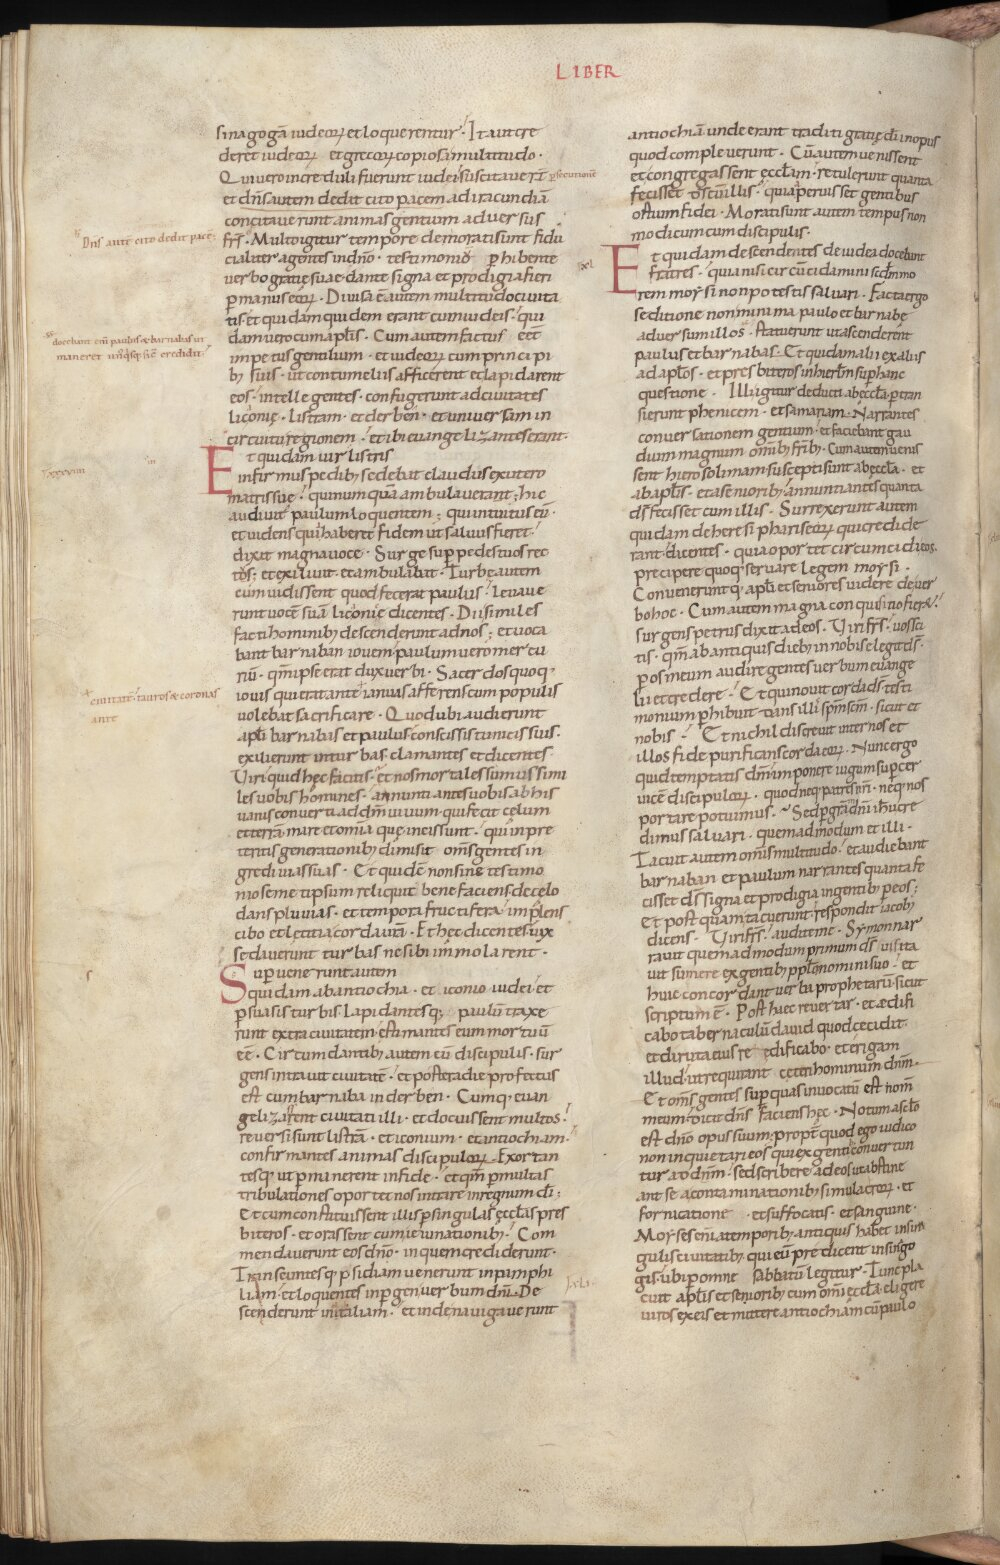 LIBER
sinagogā iudeoꝝ et loquerentur. Ita ut cre
deret iudeoꝝ et grecoꝝ copiosa multitudo.
Qui uero increduli fuerunt iudei suscitauerī psecutionē
et dn̄s autem dedit cito pacem ad iracundiā
concitauerunt animas gentium aduersus
fr̄s. Multo igitur tempore demorati sunt fidu
cialiter agentes in dn̄o. testimoniō phibente
uerbo gratię suae dante signa et prodigia fieri
p manus eoꝝ. Diuisa ē autem multitudo ciuita
tis et quidam quidem erant cum iudeis. qui
dam uero cum apl̄is. Cum autem factus eēt
impetus gentilium. et iudeoꝝ cum principi
bꝫ suis. ut contumeliis afficerent et lapidarent
eos. intellegentes. confugerunt ad ciuitates
licōnię. listram. et derbēn. et uniuersam in
circuitu regionem. et ibi euangelizantes erant.
Et quidam uir listris
infirmus pedibꝫ sedebat claudus ex utero
matris suę. qui numquā ambulauerant; hic
audiuit paulum loquentem; qui intuitus eū.
et uidens qui haberet fidem ut saluus fieret.
dixit magna uoce. Surge sup pedes tuos rec
tos; et exiliuit. et ambulabat. Turbę autem
cum uidissent quod fecerat paulus. leuaue
runt uocē suā liconię dicentes. Dii similes
facti hominibꝫ descenderunt ad nos; et uoca
bant barnaban iouem paulum uero mercu
riū. qm̄ ipse erat dux uerbi. Sacerdos quoqꝫ
iouis qui erat ante ianuas afferens cum populis
uolebat sacrificare. Quod ubi audierunt
apl̄i barnabas et paulus conscissis tunicis suis.
exilierunt in turbas. clamantes et dicentes.
Uiri quid hęc facitis. et nos mortales sumus simi
les uobis homines. annuntiantes uobis ab his
uanis conuerti ad dm̄ uiuum. qui fecit celum
et terrā mare et omnia quę in eis sunt. qui in pre
teritis generationibꝫ dimisit om̄s gentes in
gredi uias suas. Et quidē non sine testimo
nio semetipsum reliquit bene faciens de celo
dans pluuias. et tempora fructifera. implens
cibo et letitia corda ur̄a. Et hec dicentes uix
sedauerunt turbas ne sibi immolarent.
Superuenerunt autem
quidam ab antiochia. et iconio iudei et
psuasis turbis. Lapidantesqꝫ paulū traxe
runt extra ciuitatem estimantes eum mortuū
eē. Circumdantibꝫ autem eū discipulis. sur
gens intrauit ciuitatē. et postera die profectus
est cum barnaba in derben. Cumqꝫ euan
gelizarent ciuitati illi. et docuissent multos.
reuersi sunt listrā. et iconium. et antiochiam.
confirmantes animas discipuloꝝ. Exortan
tesqꝫ ut pmanerent in fide. et qm̄ p multas
tribulationes oportet nos intrare in regnum dī;
Et cum constituissent illis p singulas ęccl̄as pres
biteros. et orassent cum ieiunationibꝫ. Com
mendauerunt eos dn̄o. in quem crediderunt.
Transeuntesqꝫ psidiam uenerunt in pamphi
liam. et loquentes in pgen uerbum dn̄i. De
scenderunt in italiam. et inde nauigauerunt
Dn̄s aute cito dedit pacē.
docebant cū paulus & barnabas ut
maneret
xxxviiii
ciuitatē. tauros & coronas
ante
antiochiā unde erant traditi gratię dī in opus
quod compleuerunt. Cū autem uenissent
et congregassent eccl̄am. retulerunt quanta
fecisset dꝭ cum illis. quia peruisset gentibus
ostium fidei. Morati sunt autem tempus non
modicum cum discipulis.
xl
Et quidam descendentes de iudea docebant
fratres. quia nisi circūcidamini scdm̄ mo
rem moysi non potestis saluari. Facta ergo
seditione non minima paulo et barnabę
aduersum illos. statuerunt ut ascenderent
paulus et barnabas. Et quidam alii ex aliis
ad apl̄os. et presbiteros in hierlm̄ sup hanc
questione. Illi igitur deducti ab eccl̄a. ptran
sierunt phenicem. et samariam. Narrantes
conuersationem gentium. et faciebant gau
dium magnum om̄ibꝫ fr̄ibꝫ. Cum autem uenis
sent hierosolimam suscepti sunt ab ęccl̄a. et
ab apl̄is. et a senioribꝫ annuntiantes quanta
ds̄ fecisset cum illis. Surrexerunt autem
quidam de heresi phariseoꝝ. qui credide
rant. dicentes. quia oportet circumcidi eos.
precipere quoqꝫ seruare legem moysi.
Conuenerunt qꝫ apl̄i et seniores uidere de uer
bo hoc. Cum autem magna conquisitio fieret.
surgens petrus dixit ad eos. Uiri fr̄s. uos sci
tis. qm̄ ab antiquis diebꝫ in nobis elegit ds̄.
p os meum audire gentes uerbum euange
lii et credere. Et qui nouit corda ds̄ testi
monium phibuit dans illis spm̄ scm̄. sicut et
nobis. Et nichil discreuit inter nos et
illos fide purificans corda eoꝝ. Nunc ergo
quid temptatis dm̄ imponere iugum sup cer
uicē discipuloꝝ. quod neqꝫ patres nr̄i. neqꝫ nos
portare potuimus. Sed p gr̄am dn̄i ih̄u cre
dimus saluari. quemadmodum et illi.
Tacuit autem omnis multitudo. et audiebant
barnaban et paulum narrantes quanta fe
cisset ds̄ signa et prodigia in gentibꝫ p eos;
Et postquam tacuerunt. respondit iacobꝫ
dicens. Uiri fr̄s. audite me. Symon nar
rauit quemadmodum primum ds̄ uisita
uit sumere ex gentibꝫ ppl̄m nomini suo. et
huic concordant uerba prophetarū. sicut
scriptum ē. Post hęc reuertar. et ædifi
cabo tabernaculū dauid quod cecidit.
et diruta eius reędificabo. et erigam
illud. ut requirant ceteri hominum dn̄m.
Et om̄s gentes sup quas inuocatū est nom̄
meum. dicit dn̄s faciens hęc. Notum a sclo
est dn̄o opus suum. propt̄ quod ego iudico
non inquietari eos qui ex gentibꝫ conuertun
tur ad dn̄m. sed scribere ad eos ut abstine
ant se a contaminationibꝫ simulacroꝝ. et
fornicatione. et suffocatis. et sanguine.
Moyses enī a temporibꝫ antiquis habet in sin
gulis ciuitatibꝫ. qui eū predicent in sinago
gis. ubi p omne sabbatū legitur. Tunc pla
cuit apl̄is et senioribꝫ cum omi ęccl̄a. eligere
uiros ex eis et mittere antiochiam cū paulo
xli.